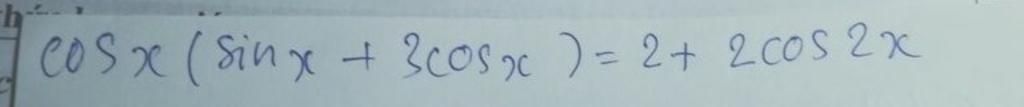 cosx (sinx + 3cosx) = 2 + 2cos2x